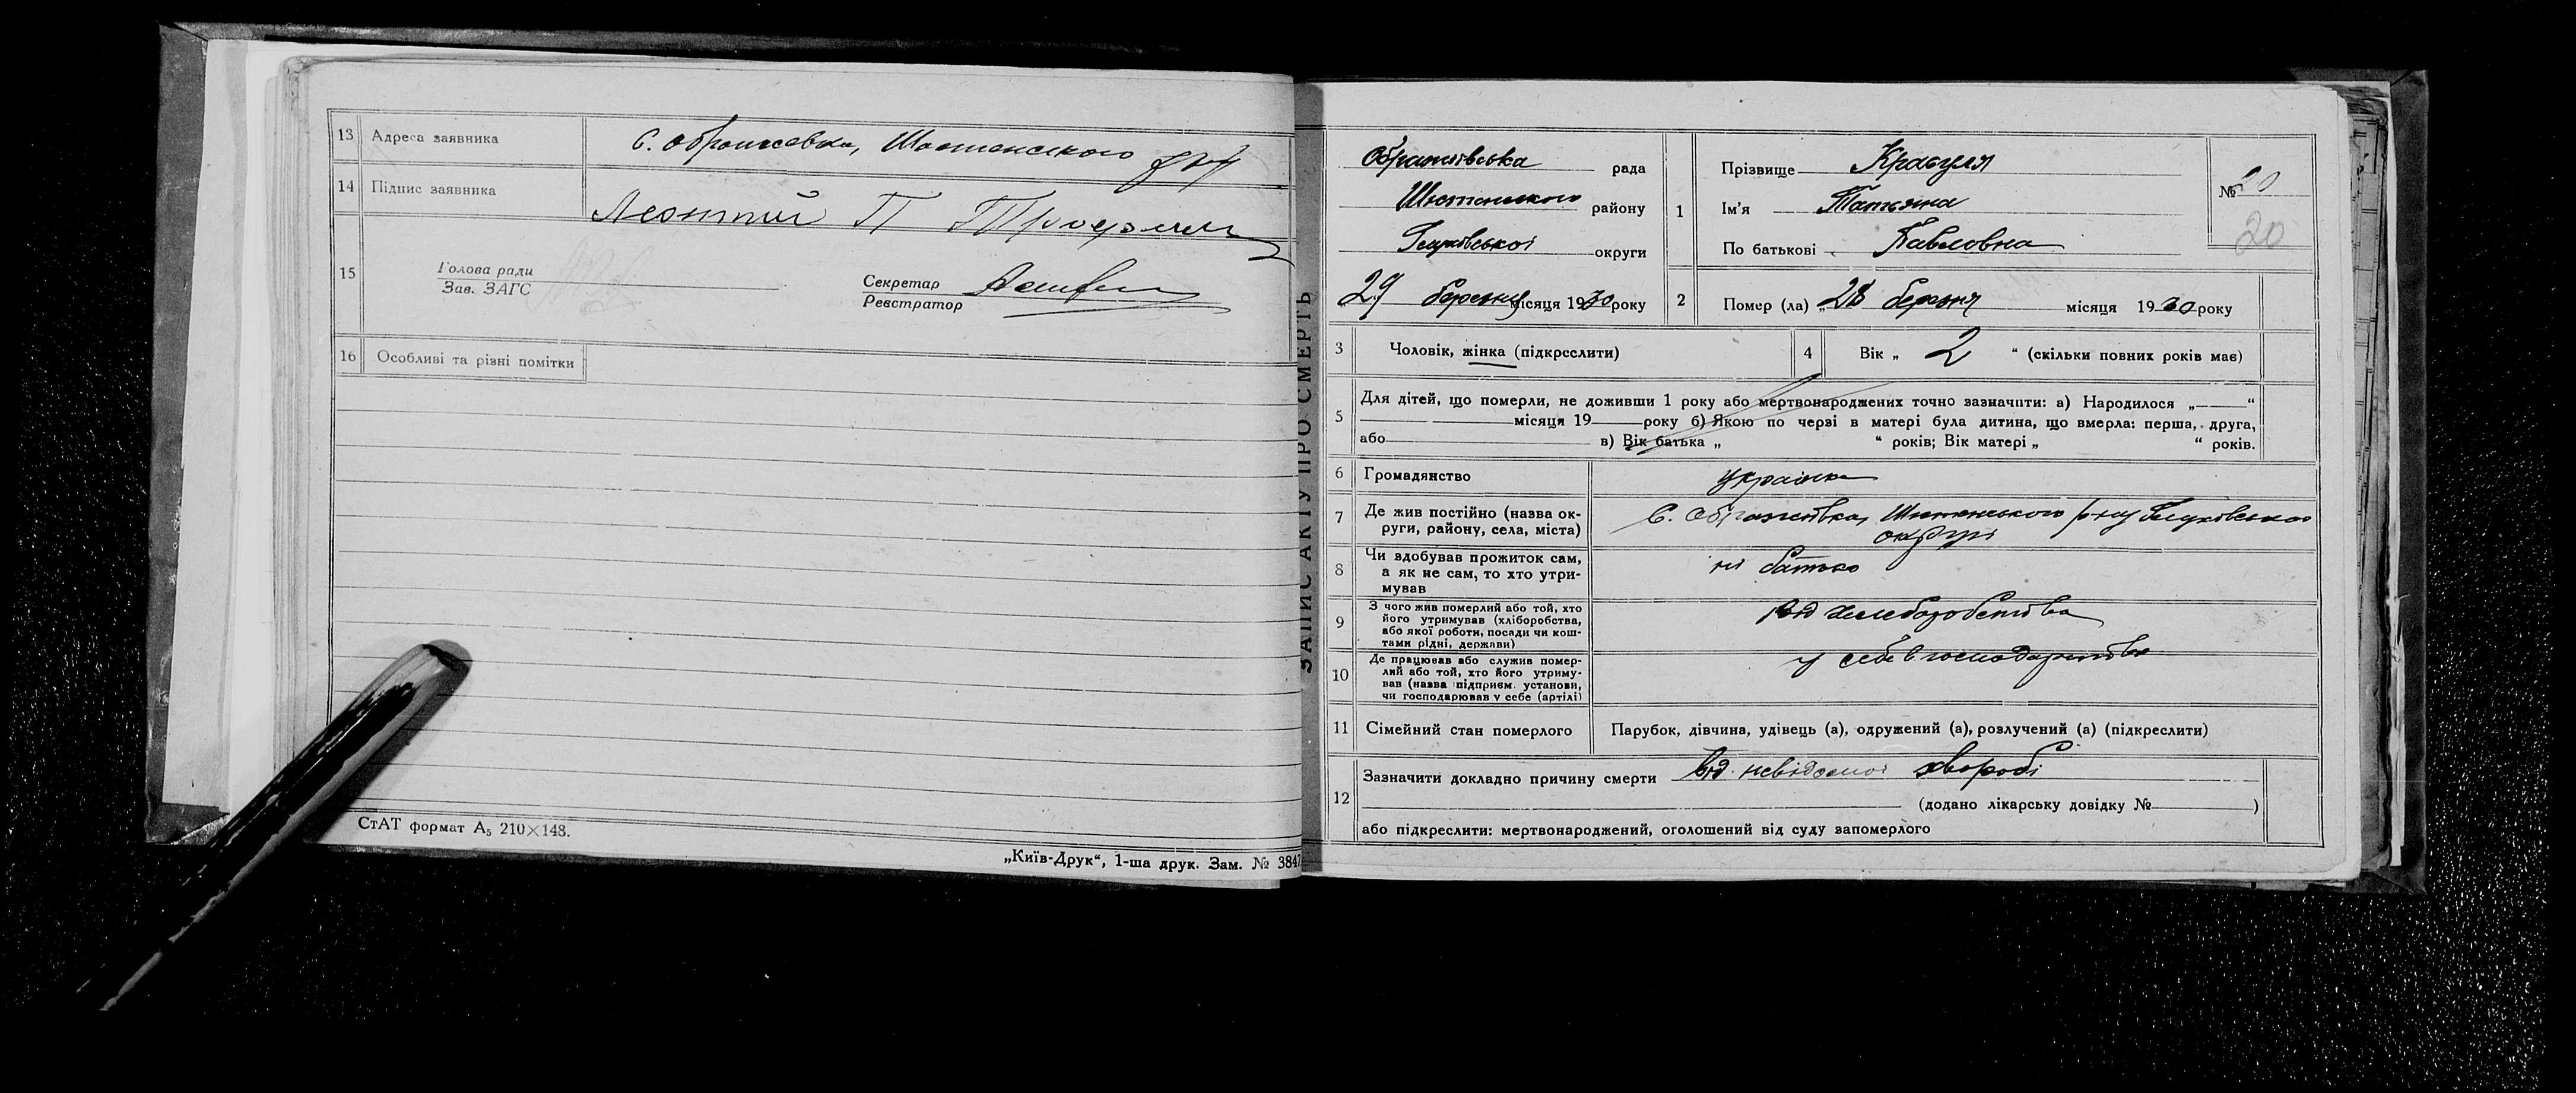 13 Адреса заявника С. Ображеевка, Шостенского р-ну
14 Підпис заявника Леонтий П
15 Голова ради
Зав. ЗАГС
Секретар
Реєстратор
16 Особливі та різні помітки
СтАТ формат А₅ 210×148.
„Київ-Друк“, 1-ша друк. Зам. № 3847
ЗАПИС АКТУ ПРО СМЕРТЬ
Ображіївська рада
Шостенського району
Глухівської округи
29 березня місяця 1930 року
1 Прізвище Красуля
Ім'я Татьяна
По батькові Павловна
№ 20
20
2 Помер (ла) „28 березня місяця 1930 року
3 Чоловік, жінка (підкреслити)
4 Вік „ 2 “ (скільки повних років має)
5 Для дітей, що померли, не доживши 1 року або мертвонароджених точно зазначити: а) Народилося „ “
місяця 19 року б) Якою по черзі в матері була дитина, що вмерла: перша, друга,
або в) Вік батька „ “ років; Вік матері „ “ років.
6 Громадянство українка
7 Де жив постійно (назва ок-
руги, району, села, міста)
С. Ображіївка, Шостенського р-ну Глухівської
округи
8 Чи здобував прожиток сам,
а як не сам, то хто утри-
мував
ні батько
9 З чого жив померлий або той, хто
його утримував (хліборобства,
або якої роботи, посади чи кош-
тами рідні, держави)
від хлеборобства
10 Де працював або служив помер-
лий або той, хто його утриму-
вав (назва підприєм. установи,
чи господарював у себе (артілі)
у себе в господарстві
11 Сімейний стан померлого Парубок, дівчина, удівець (а), одружений (а), розлучений (а) (підкреслити)
12 Зазначити докладно причину смерти Від невідомої хвороби
(додано лікарську довідку № )
або підкреслити: мертвонароджений, оголошений від суду запомерлого